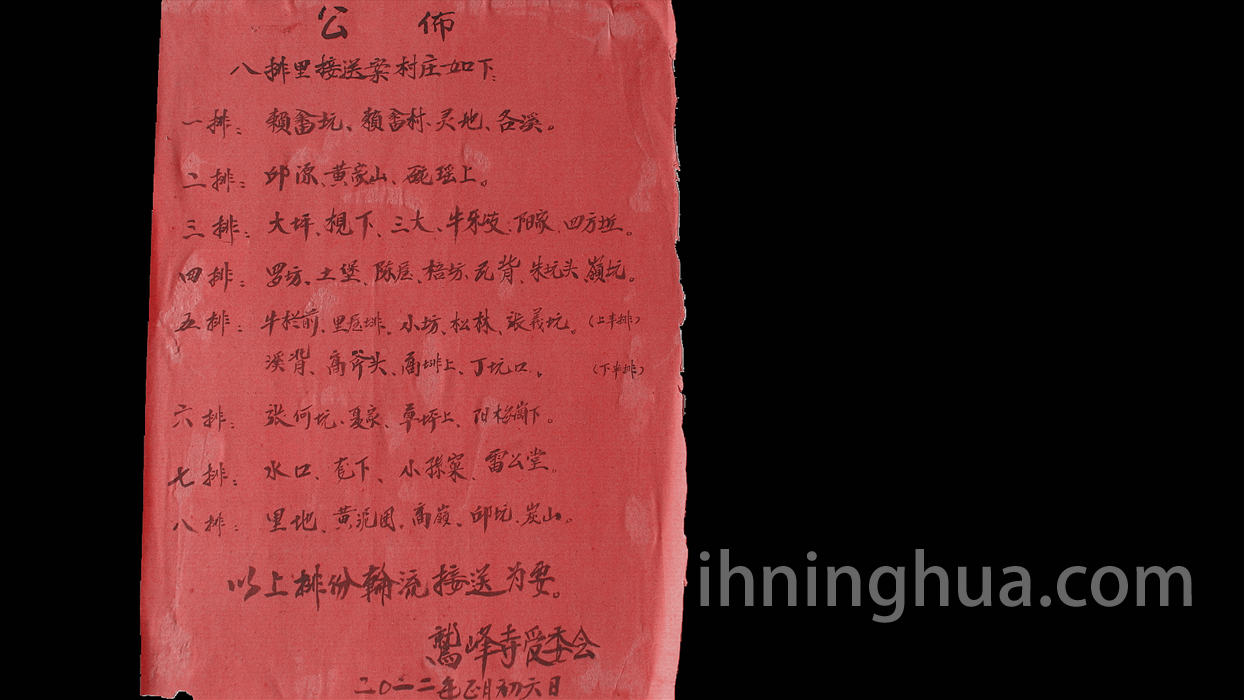 公 佈
八排里接送案村庄如下:
一排: 賴畲坑、賴畲村、灵地、各溪。
二排: 邱源、黄家山、碗瑶上。
三排: 大坪、楒下、三大、牛牙岐、阳家、四方坵。
四排: 罗坊、土堡、陈屋、梧坊、瓦背、朱坑头、嶺坑。
五排: 牛栏前、里屋排、小坊、松林、张義坑。(上半排)
溪背、高斧头、高排上、丁坑口。 (下半排)
六排: 张何坑、聂家、草坪上、阳梅崗下。
七排: 水口、下、小孫窠、雷公堂。
八排: 里地、黄泥囷、高嶺、邱坑、炭山。
以上排份輪流接送为要。
鷲峰寺受委会
二0二二年正月初六日
ihninghua.com